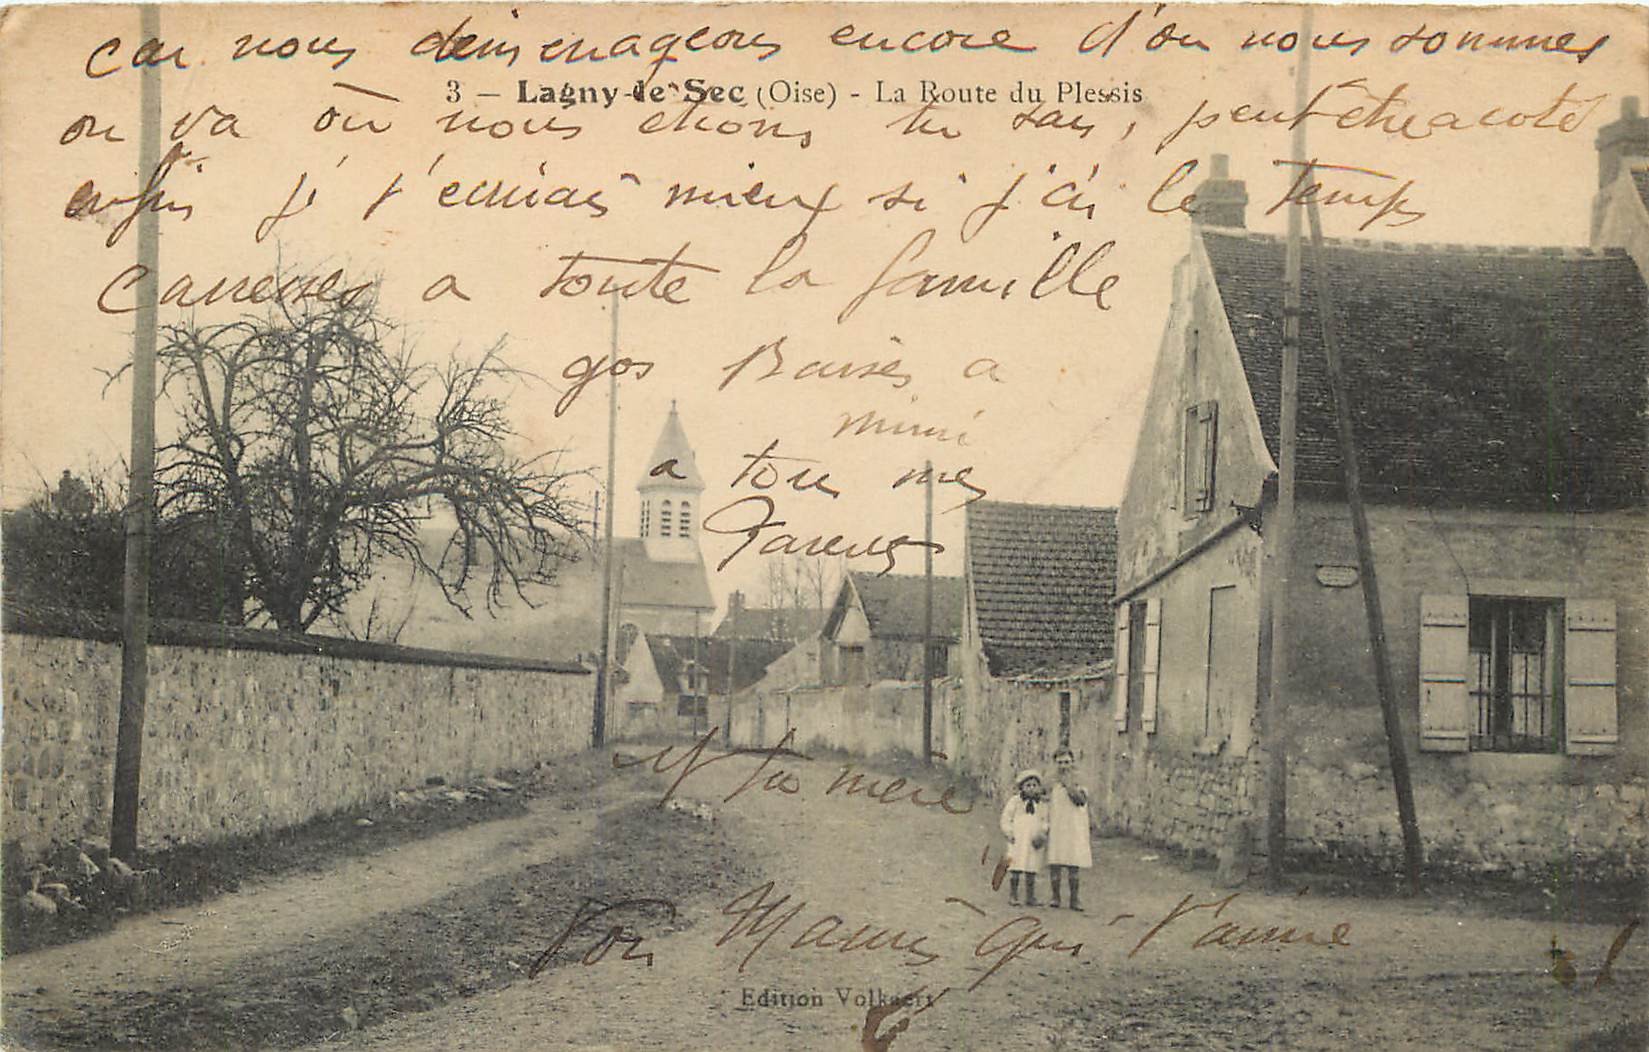 car nous demenageons encore d'ou nous sommes
3 — Lagny-le-Sec (Oise) - La Route du Plessis
on va où nous etions tu sais, peut être a coté
enfin je t'ecrirais mieux si j'ai le temps
caresses a toute la famille
gos Baises a
mimi
a tous mes
Parents
et ta mère
Ton Mauri qui t'aime
Edition Volkaert